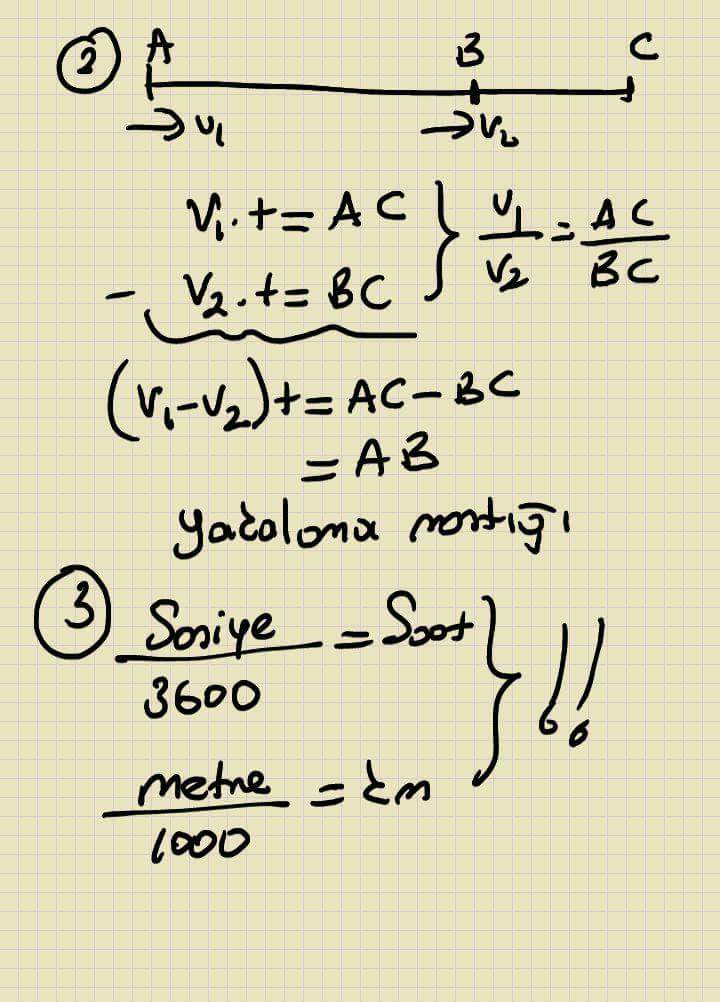 2 A B C
→ V₁ → V₂
V₁.t = AC } V₁/V₂ = AC/BC
- V₂.t = BC
(V₁-V₂)t = AC - BC
= AB
yakalama mantığı
3 Saniye/3600 = Saat } !!
metre/1000 = km